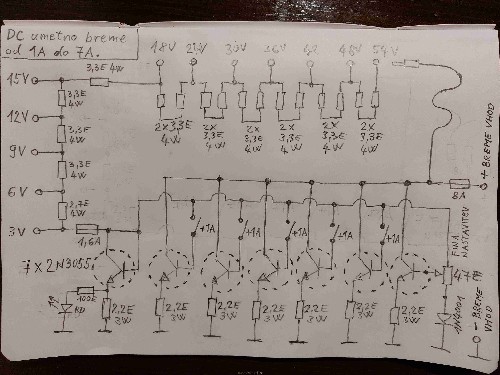 DC umetno breme
od 1A do 7A.
18V 21V 30V 36V 42 48V 54V
15V
3,3E
4W
3,3E
4W
12V
3,3E
4W
9V
3,3E
4W
6V
2,7E
4W
3V
1,6A
2x3,3E
4W
2x
3,3E
4W
2x
3,3E
4W
2x
3,3E
4W
2x
3,3E
4W
2x
3,3E
4W
+ BREME VHOD
8A
+1A
+1A
+1A
+1A
+1A
FINA
NASTAVITEV
47
7x2N3055
100E
RD
2,2E
3W
2,2E
3W
2,2E
3W
2,2E
3W
2,2E
3W
2,2E
3W
2,2E
3W
1N4001
- BREME
VHOD